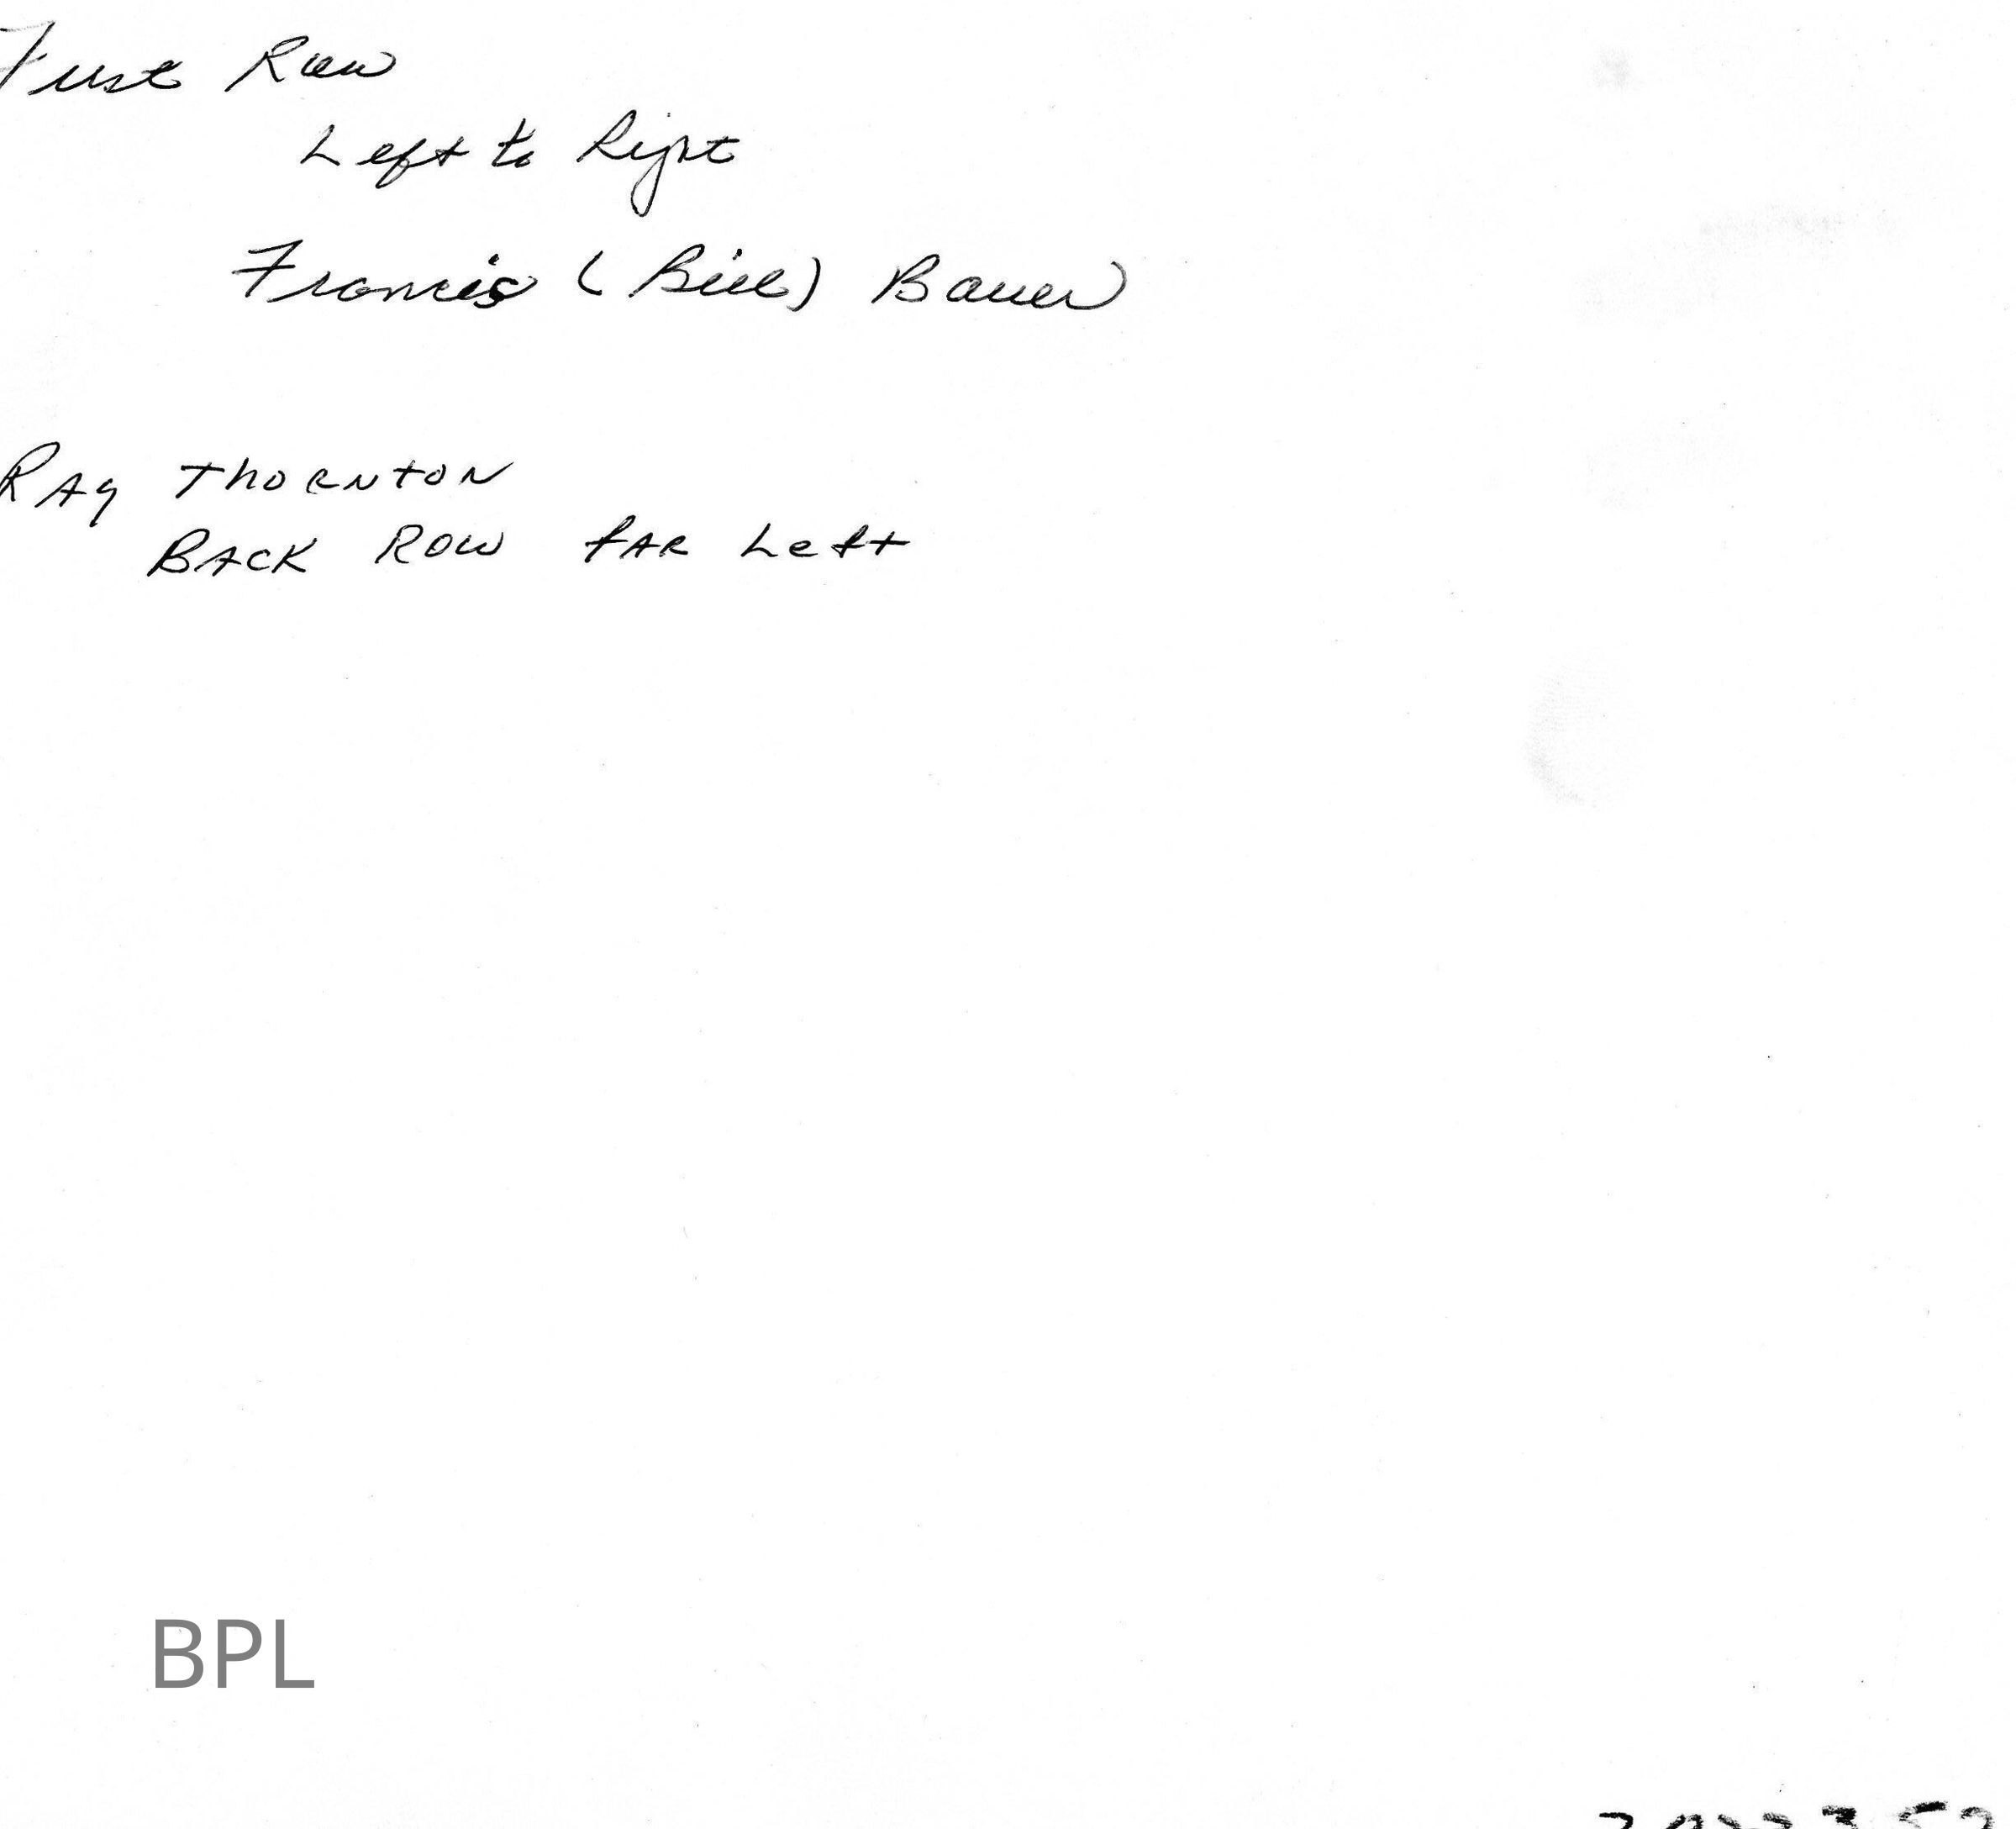 First Row
Left to Right
Francis (Bill) Bauer
RAy ThORNTON
BACK ROW fAR Left
BPL